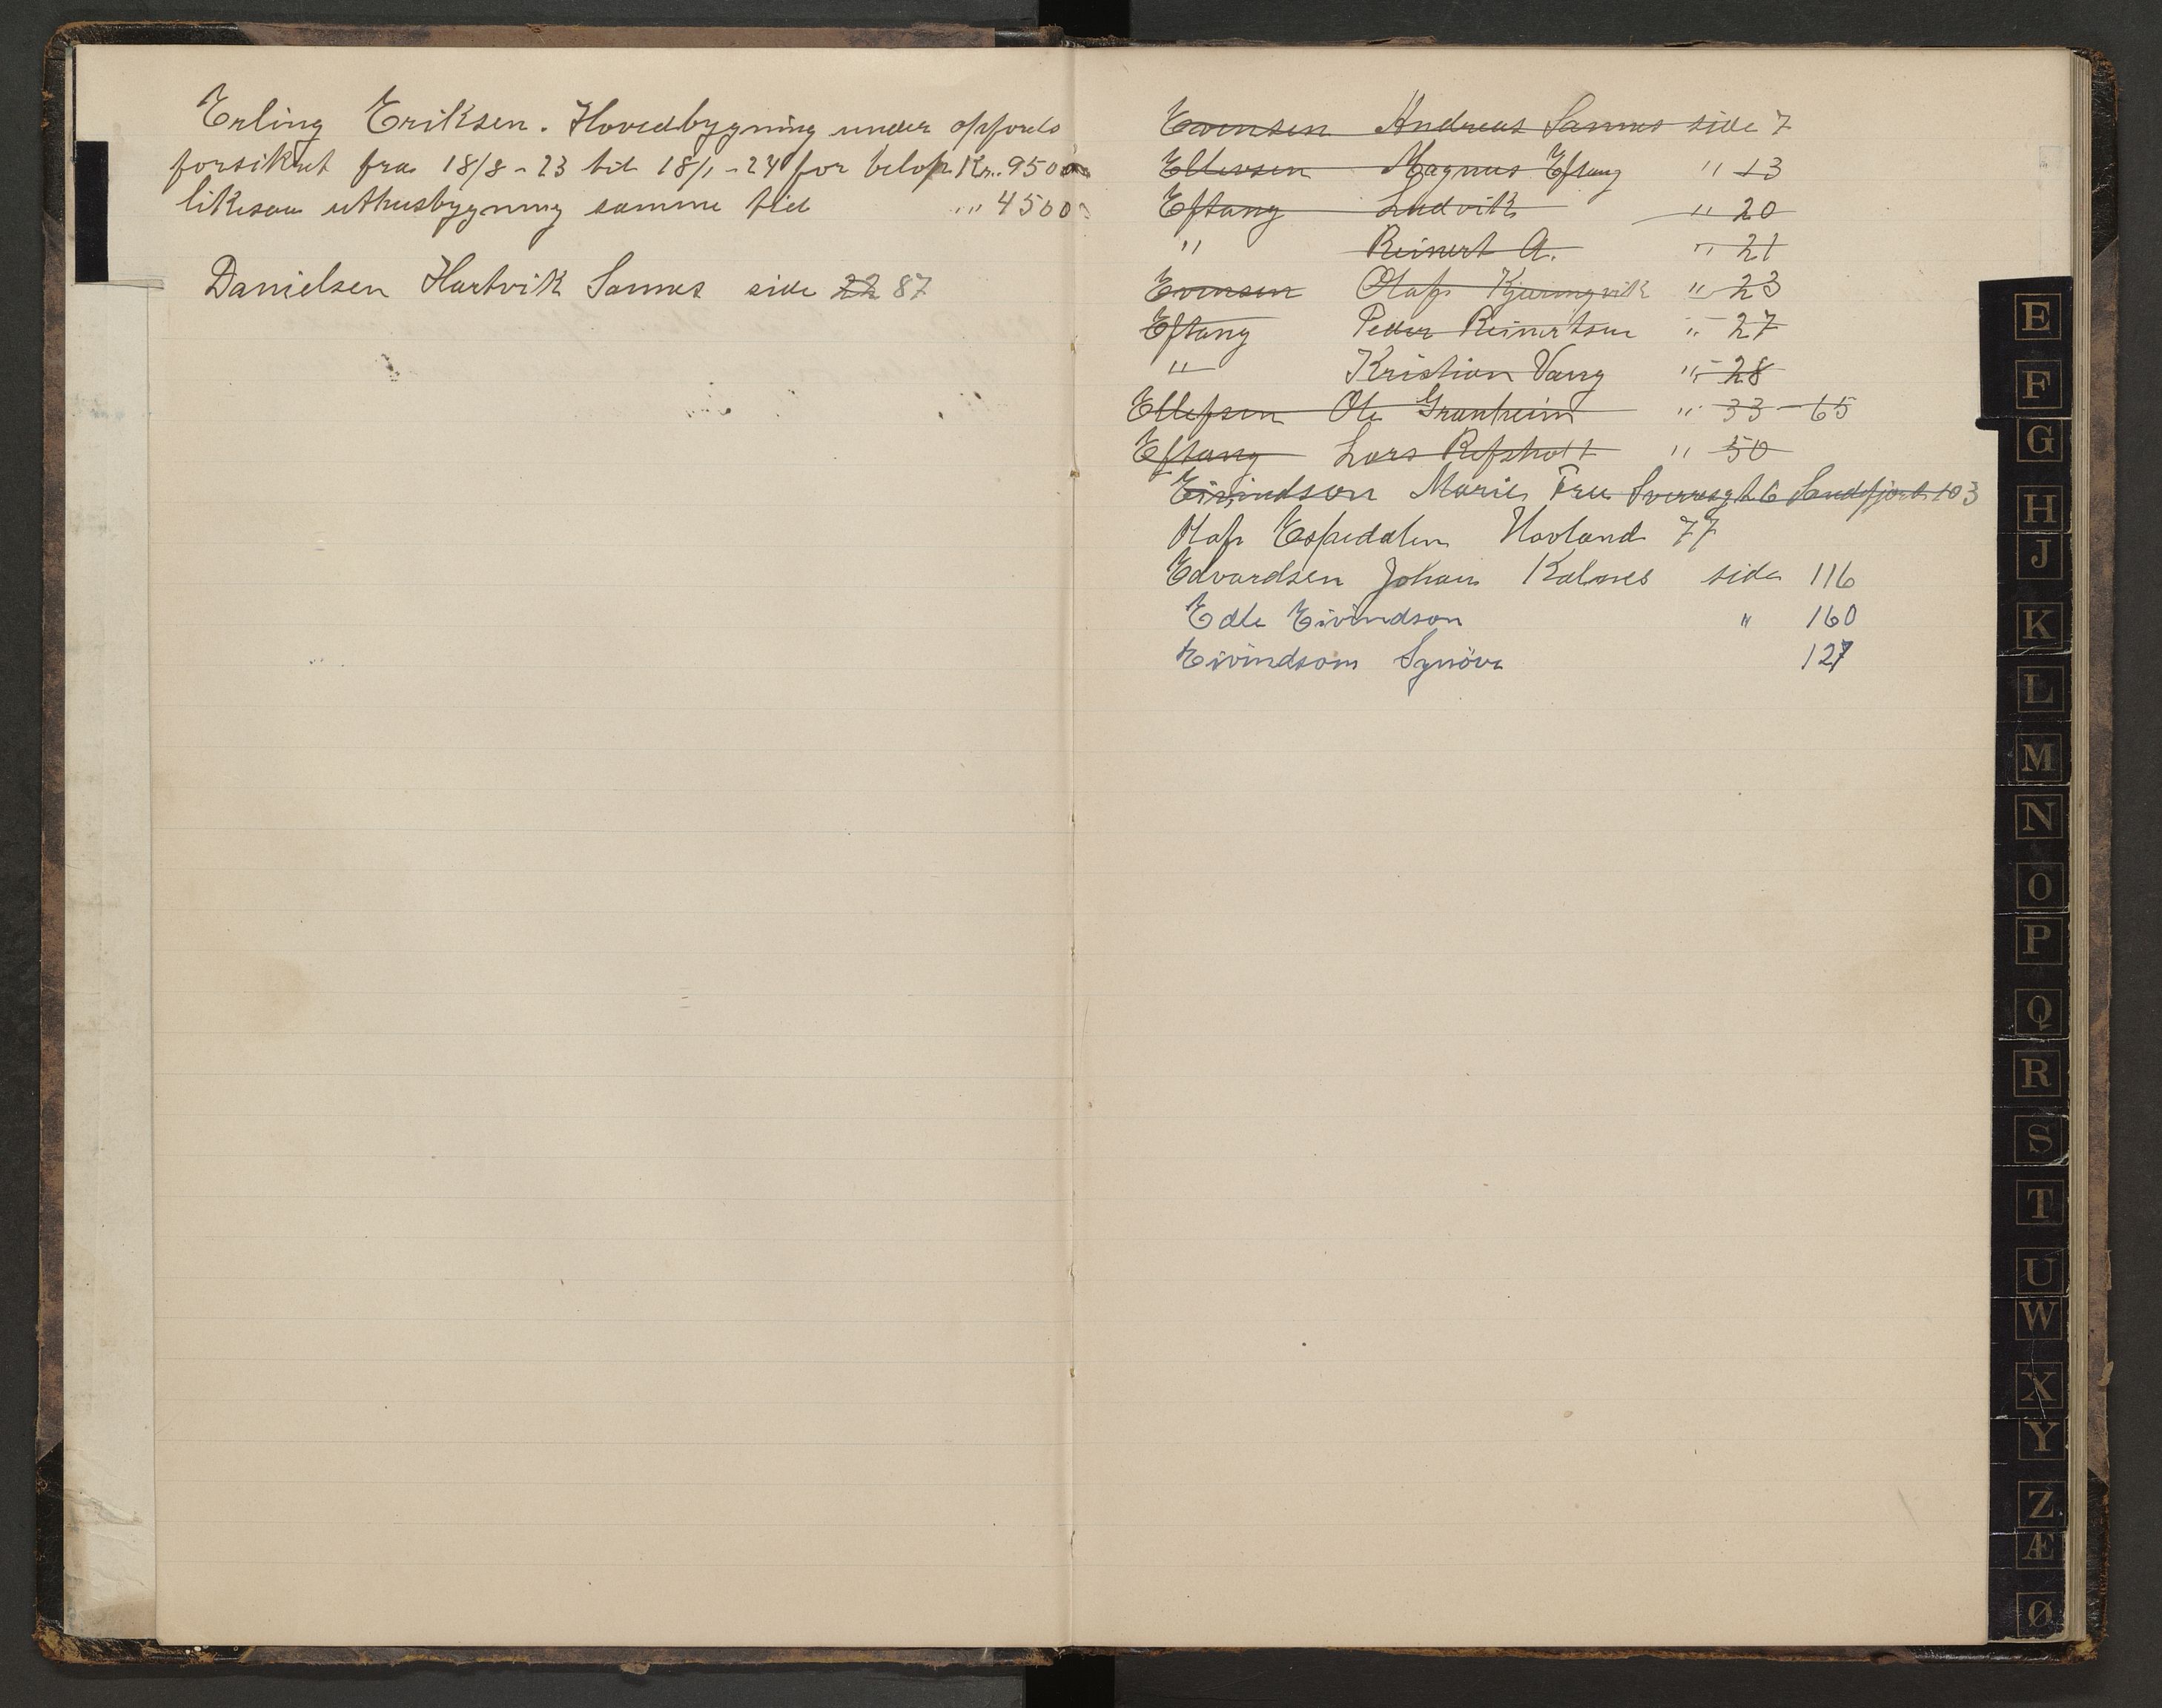 Erling Eriksen. Hovedbygning under opförels
forsikret fra 18/8-23 til 18/1-24 for beløp Kr. 9500
likesaa uthusbygning samme tid „ „ 4500
Danielsen Hartvik Sannes side 22 87
Evensen Andreas Sannes side 7
Ellevsen Magnus Eftang „ 13
Eftang Ludvik „ 20
„ Reinert A. „ 21
Evensen Olaf Kjerringvik „ 23
Eftang Peder Reinertsen „ 27
„ Kristian Vang „ 28
Ellefsen Ole Granheim „ 33 - 65
Eftang Lars Refsholt „ 50
Eivindson Marie Fru Sverresgt. 6 Sandefjord 103
Olaf Espedalen Hovland 77
Edvardsen Johan Kalnes side 116
Edle Eivindson „ 160
Eivindson Synöve 127
E
F
G
H
J
K
L
M
N
O
P
Q
R
S
T
U
W
X
Y
Z
Æ
Ø